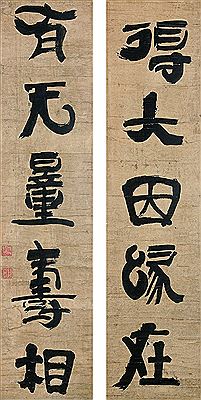 得大因緣在
有无量壽相